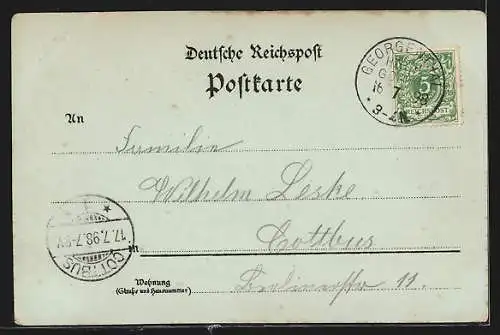 Deutsche Reichspost
Postkarte
GEORGENTHAL
16 7 98
3-4N
5
REICHSPOST
An
Familie
Wilhelm Leske
in Cottbus
17.7.98.7-8V
COTTBUS
Wohnung
(Straße und Hausnummer)
11.